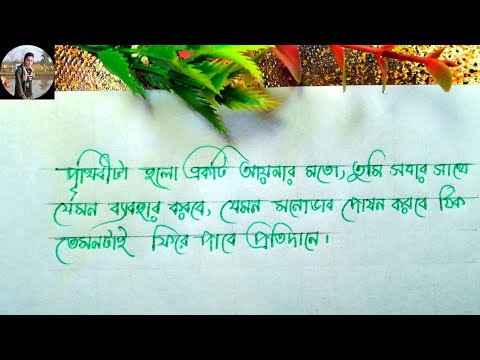 পৃথিবীটা হলো একটি আয়নার মতো, তুমি সবার সাথে
যেমন ব্যবহার করবে, যেমন মনোভাব পোষন করবে ঠিক
তেমনটাই ফিরে পাবে প্রতিদানে।